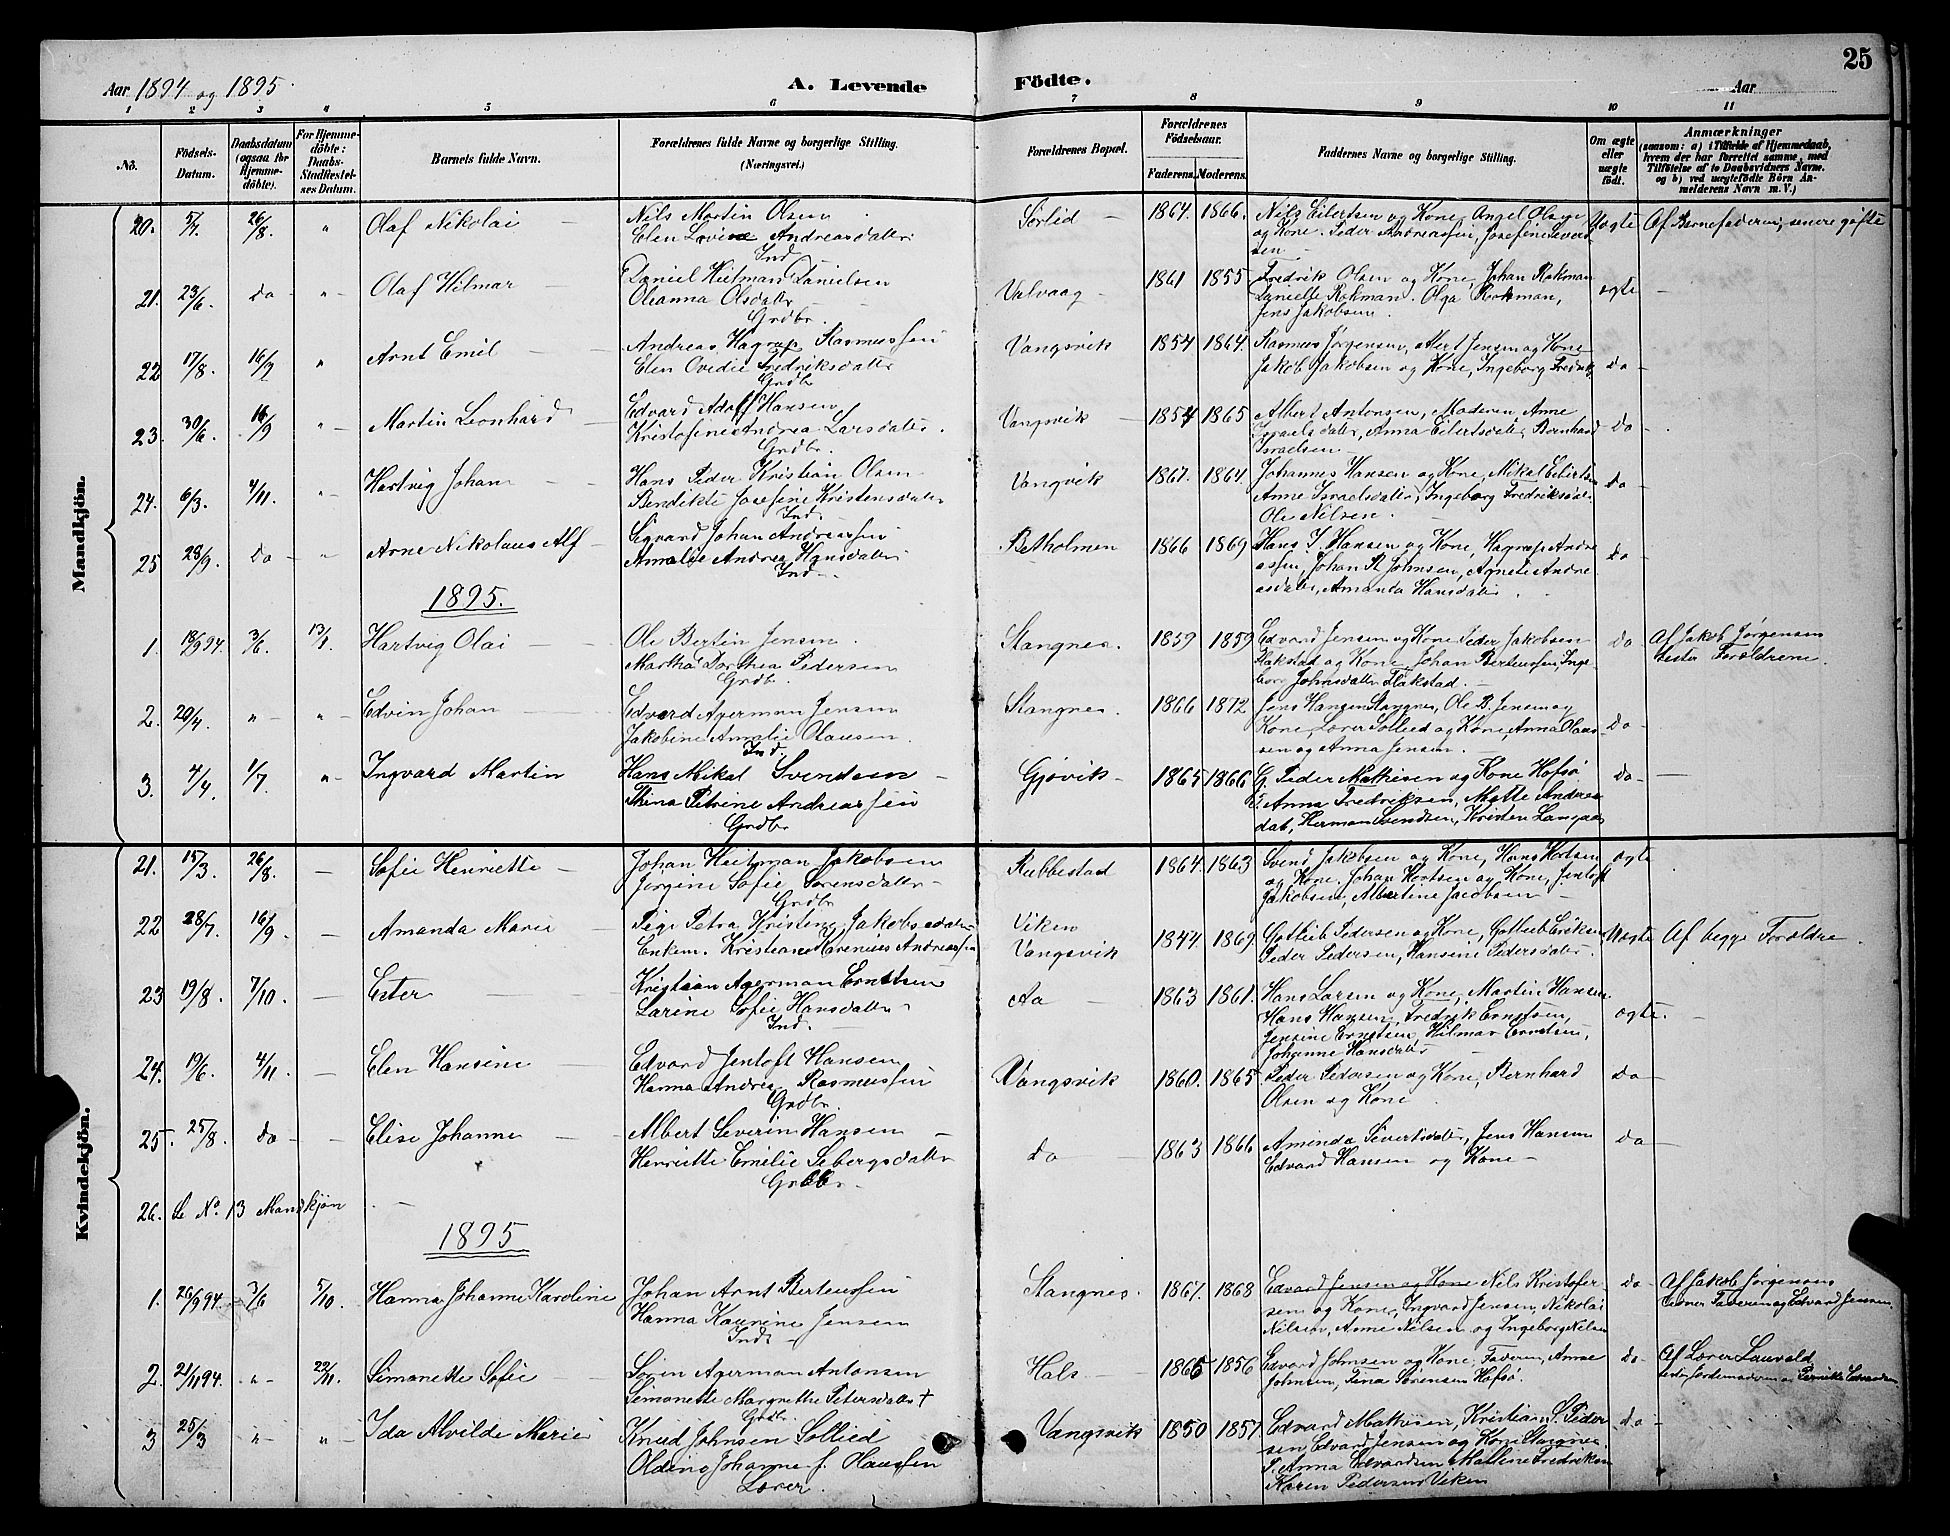 25
Aar 1894 og 1895. A. Levende Födte. Aar
1 2 3 4 5 6 7 8 9 10 11
No. Födsels-Datum. Daabsdatum (ogsaa for Hjemmedöbte). For Hjemmedöbte: Daabs-Stadfæstelses Datum. Barnets fulde Navn. Forældrenes fulde Navne og borgerlige Stilling. (Næringsvei.) Forældrenes Bopæl. Forældrenes Födselsaar. Faderens. Moderens. Faddernes Navne og borgerlige Stilling. Om ægte eller uægte födt. Anmærkninger (saasom: a) i Tilfælde af Hjemmedaab, hvem der har forrettet samme, med Tilföielse af to Daabsvidners Navne, og b) ved uægtefödte Börn Anmelderens Navn m. V.)
Mandkjön.
20. 5/7. 26/8. " Olaf Nikolai Nils Martin Olsen Sørlid 1864. 1866. Nils Eilertsen og Kone, Angel Olsen Uægte Af Barnefaderen, senere gifte
Elen Lovine Andreasdatter og Kone. Peder Andreassen, Josefine Sivert
Ind. sen
21. 23/6. do " Olaf Hilmar Daniel Heitman Danielsen Valvaag 1861 1855 Fredrik Olsen og Kone, Johan Rokman ægte
Oleanna Olsdatter Danielle Rokman. Olga Rokman,
Grdbr. Jens Jakobsen.
22 17/8. 16/9 " Arnt Emil Andreas Hagrup Rasmussen Vangsvik 1854 1864. Rasmus Jørgensen, Albert Jensen og Kone
Elen Ovidie Fredriksdatter Jakob Jakobsen og Kone, Ingeborg Fredriks do
Grdbr
23. 30/6. 16/9 " Martin Leonhard Edvard Adolf Hansen Vangsvik 1854 1865 Albert Antonsen, Moderen, Anne
Kristofine Andrea Larsdatter. Israelsdatter, Anna Eilertsdatter, Bernhard do
Grdbr. Israelsen
24. 6/3. 4/11. " Hartvig Johan Hans Peder Kristian Olsen Vangvik 1867. 1864. Johannes Hansen og Kone, Mikal Eilertsen
Bendikte Josefine Kristensdatter Anne Israelsdatter, Ingeborg Fredriksdat do
Ind. Ole Nilsen.
25 28/9. do " Arne Nikolaus Alf Sigvard Johan Andreassen Betholmen 1866 1869 Hans J. Hansen og Kone, Hagrup Andre
Amalie Andrea Hansdatter assen, Johan R. Johnsen, Agnete Andre do
Ind. asdatter, Amanda Hansdatter.
1895.
1. 18/9 94. 3/6. 13/1. Hartvig Olai Ole Bertin Jensen. Stangnes. 1859 1859 Edvard Jensen og Kone Peder Jakobsen do Af Jakob Jørgensen
Martha Dorthea Pedersen Flakstad og Kone, Johan Berteussen, Inge Tester Forældrene.
Grdbr. borg Johnsdatter Flakstad.
2. 20/4. " " Edvin Johan Edvard Agerman Jensen Stangnes. 1866 1872 Jens Hansen Stangnes, Ole B. Jensen og
Jakobine Amalie Olausen. Kone, Lærer Sollied og Kone, Anna Olaus do
Ind. sen og Anna Jensen.
3. 4/4. 1/7. " Ingvard Martin Hans Mikal Svendsen Gjøvik 1865 1866 G. Peder Mathisen og Kone Hofsø do
Thina Petrine Andreassen P. Anna Fredriksen, Mette Andreas
Grdbr dat, Herman Svendsen, Kristen Langaas
Kvindekjön.
21. 15/3. 26/8. Sofie Henriette Johan Heitman Jakobsen Rubbestad 1864. 1863 Svend Jakobsen og Kone, Hans Hortsen ægte
Jørgine Sofie Sørensdatter og Kone. Johan Hortsen og Kone, Jentoft
Grdbr Jakobsen, Albertine Jacobsen
22 28/7. 16/9. Amanda Marie Pige Petra Kristine Jakobsdatter Viken 1844 1869. Gotlieb Pedersen og Kone, Gotlieb Eriksen Uægte Af begge Forældre.
Enkem. Kristian Marenius Andreassen Vangsvik Peder Pedersen, Hansine Pedersdatter.
23 19/8. 7/10. Ester Kristian Agerman Erntsen Aa 1863 1861. Hans Larsen og Kone, Martin Hansen
Larine Sofie Hansdatter Hans Hansen, Fredrik Erntsen, ægte.
Ind. Jensine Erntsen, Hilmar Erntsen,
Johanne Hansdatter
24. 19/6. 4/11. Elen Hansine Edvard Jentoft Hansen Vangsvik 1860. 1865 Peder Pedersen og Kone, Bernhard do
Hanna Andrea Rasmussen Olsen og Kone
Grdbr.
25. 25/8. do Elise Johanne Albert Severin Hansen do 1863 1866 Aminda Sivertsdatter, Jens Hansen do
Henriette Emilie Sebergsdatter Edvard Hansen og Kone
Grdbr.
26. Se No. 13 Mandkjøn
1895
1. 26/9 94. 3/6 5/10. Hanna Johanne Karoline Johan Arnt Berteussen Stangnes. 1867. 1868 Edvard Jensen og Kone Nils Kristofer do Af Jakob Jørgensen
Hanna Kaurine Jensen sen og Kone, Ingvard Jensen, Nikolai Vidner Faderen og Edvard Jensen
Inds Nilsen, Anne Nilsen og Ingeborg Nilsen
2. 21/11 94. " 22/11. Simonette Sofie Sørin Agerman Antonsen Hals 1865 1856 Edvard Johnsen og Kone, Faderen, Anne do Af Lærer Lauvald
Simonette Margrethe Petersdatter + Johnsen, Tina Sørensen Hofsø.
Grdbr.
3 25/3 " " Ida Alvilde Marie Knud Johnsen Sollied Vangsvik 1850 1857. Edvard Mathisen, Kristian S. Peder do
Oldine Johanne f. Olaussen sen Edvard Jensen og Kone Stangnes.
Lærer. P. Anna Edvardsen, Mathene Fredriksen
Karen Pedersen Viken